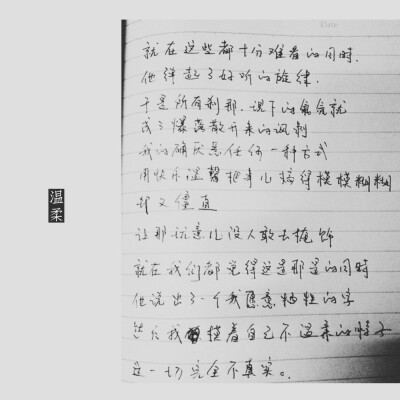 就在这些都十分难看的同时.
他弹起了好听的旋律.
于是所有刹那.记下的氛围就
成了爆荡散开来的讽刺
我的确厌恶任何一种方式
用快乐温馨把事儿搞得模模糊糊
却又僵直
让那玩意儿没人敢去掩饰
就在我们都觉得这是那是的同时
他说出了一个我愿意牺牲的字
然后我揣着自己不温柔的性子
这一切完全不真实。
温柔